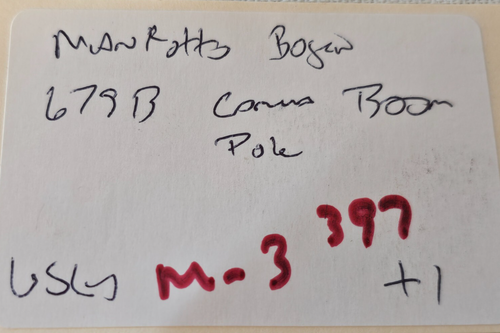 Manfrotto Bogen
679B Camera Boom
Pole
397
M-3
+1